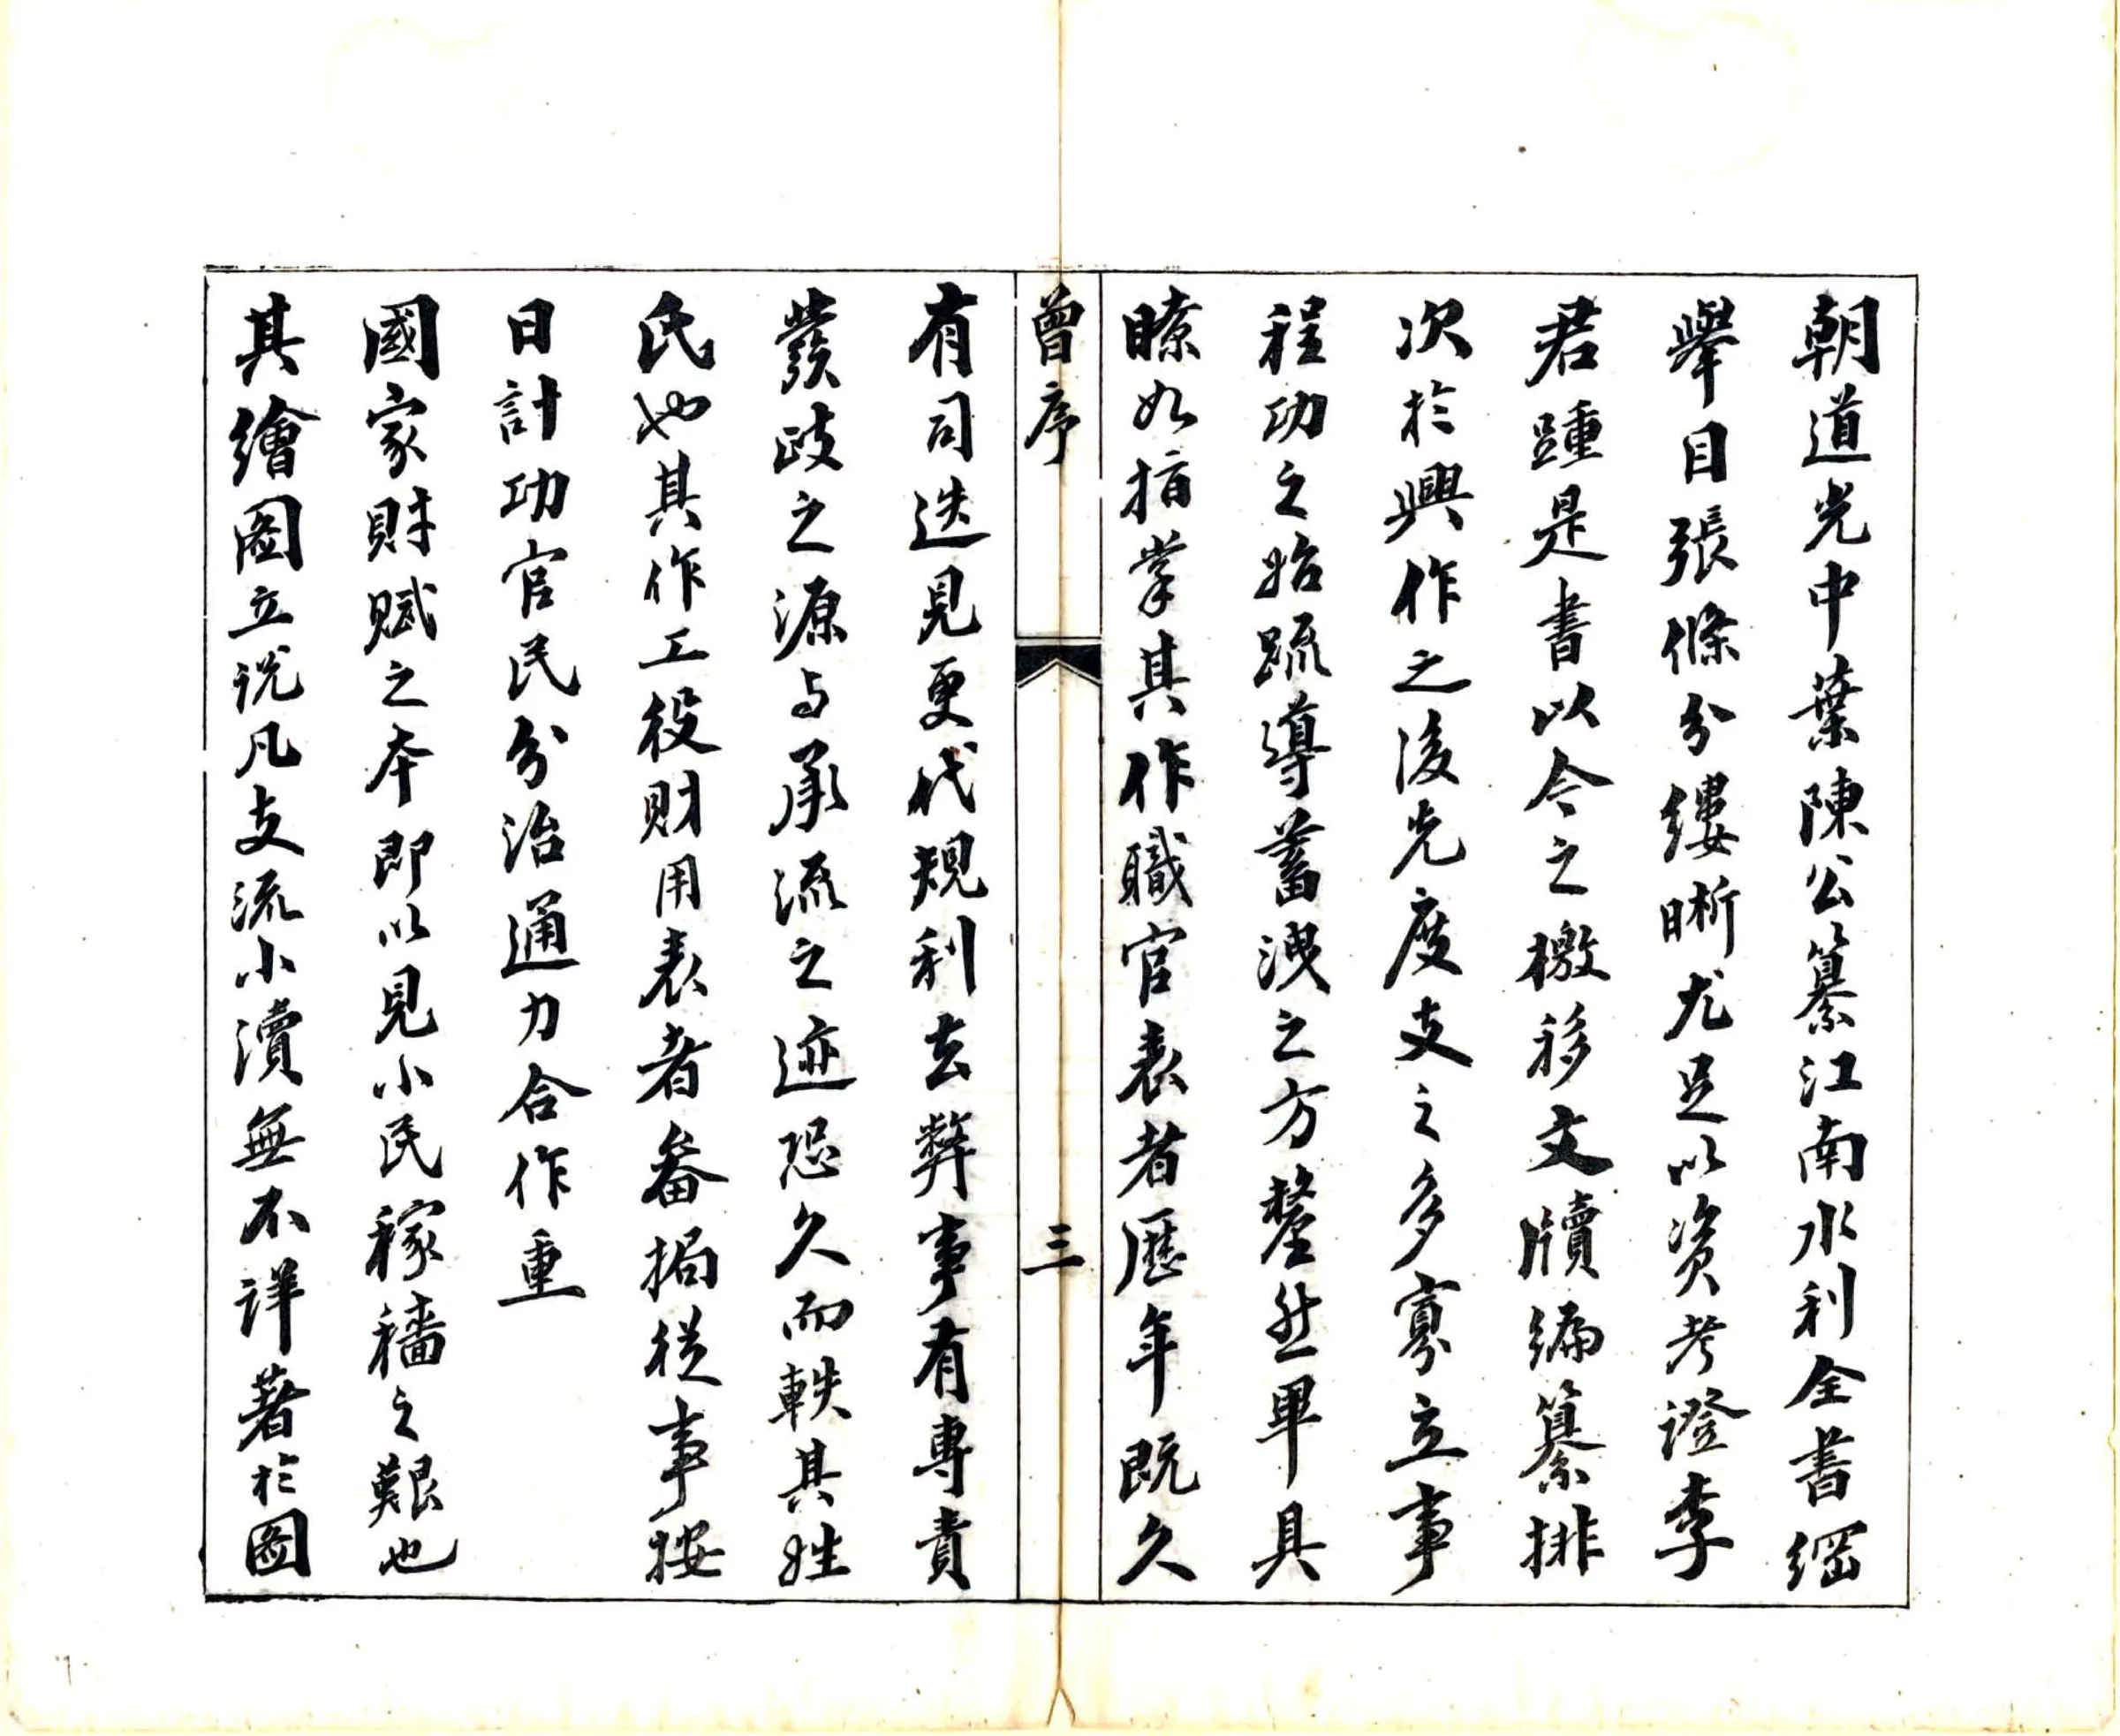 朝道光中葉陳公纂江南水利全書綱
舉目張條分縷晰尤足以資考證李
君踵是書以令之檄移文牘編纂排
次於興作之後先度支之多寡立事
程功之始疏導蓄洩之方釐然畢具
瞭如指掌其作職官表者歷年既久
曾序
三
有司迭見更代規利去弊事有專責
發歧之源与承流之迹恐久而軼其姓
氏也其作工役財用表者畚挶從事按
日計功官民分治通力合作重
國家財賦之本即以見小民稼穡之艱也
其繪圖立说凡支流小瀆無不详著於圖